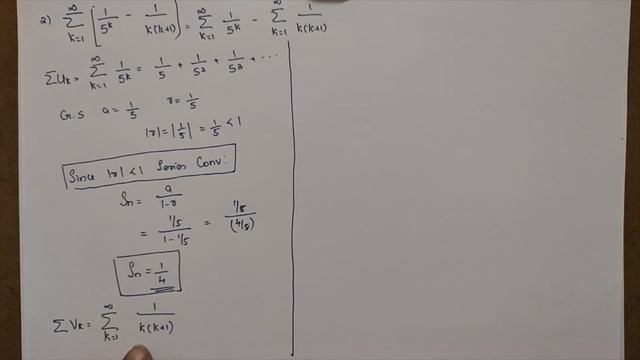 2) ∞∑k=1 [1/5^k - 1/k(k+1)] = ∞∑k=1 1/5^k - ∞∑k=1 1/k(k+1).
∑Uk = ∞∑k=1 1/5^k = 1/5 + 1/5² + 1/5³ + ...
G.S a = 1/5 r = 1/5
|r| = |1/5| = 1/5 < 1
Since |r| < 1 Series Conv:
Sn = a/1-r
= 1/5/1-1/5 = 1/5/(4/5)
Sn = 1/4
∑Vk = ∞∑k=1 1/k(k+1)